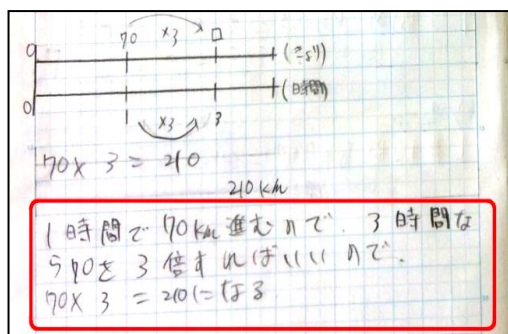 70 ×3 □
0 (きょり)
0 (時間)
1 ×3 3
70×3=210
210km
1時間で70km進むので、3時間な
ら70を3倍すればいいので、
70×3=210になる